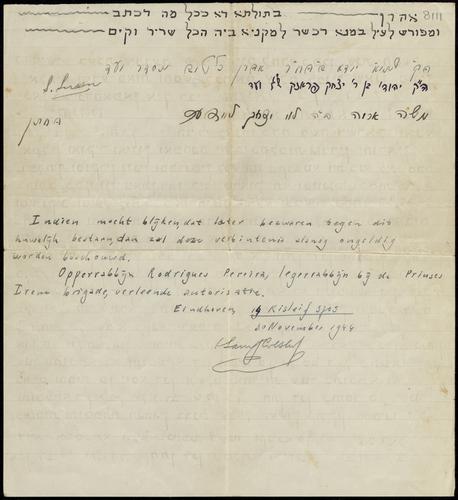 אהרן בתולתא דא ככל מה דכתב 8111
ומפורש לעיל במנא דכשר למקניא ביה הכל שריר וקים
מסדר ועד
יהודי בן ר' יצחק פראנק ועד
משה אריה ב"ה לוי יצחק
החתן
Indien mocht blijken, dat later bezwaren tegen dit
huwelijk bestaan, dan zal deze verbintenis alsnog ongeldig
worden beschouwd.
Opperrabbijn Rodrigues Pereira, legerrabbijn bij de Prinses
Irene brigade, verleende autorisatie.
Eindhoven, Kisleif 5705
20 November 1944